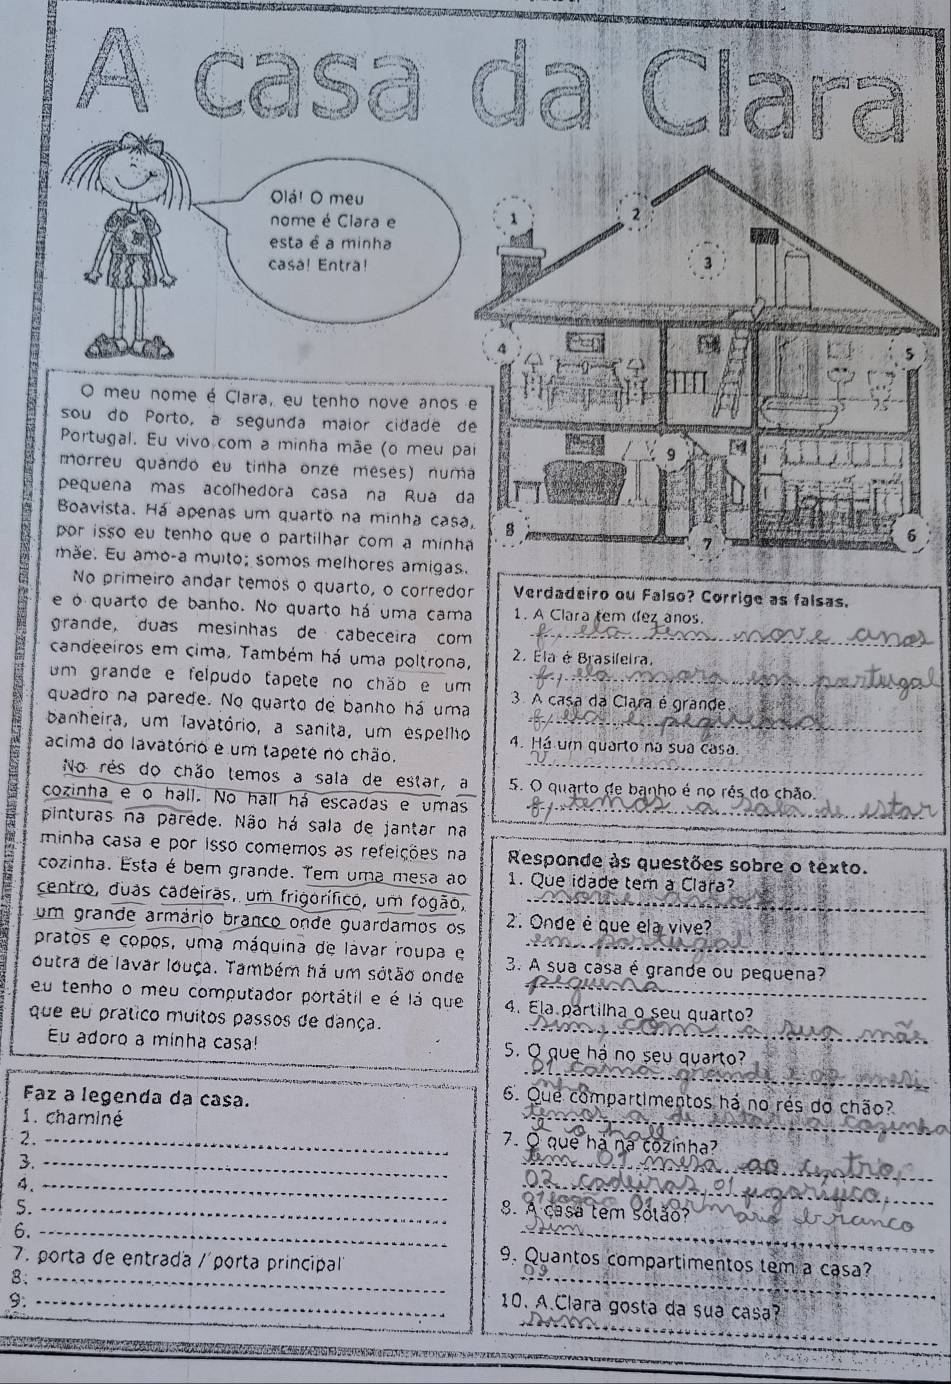 A casa da Clara
Olá! O meu
nome é Clara e
esta é a minha
casa! Entra!
1
2
3
4
5
9
8
7
6
O meu nome é Clara, eu tenho nove anos e
sou do Porto, a segunda maior cidade de
Portugal. Eu vivo com a minha mãe (o meu pai
morreu quando eu tinha onze meses) numa
pequena mas acolhedora casa na Rua da
Boavista. Há apenas um quarto na minha casa,
por isso eu tenho que o partilhar com a minha
mãe. Eu amo-a muito; somos melhores amigas.
No primeiro andar temos o quarto, o corredor
e o quarto de banho. No quarto há uma cama
grande, duas mesinhas de cabeceira com
candeeiros em cima. Também há uma poltrona,
um grande e felpudo tapete no chão e um
quadro na parede. No quarto de banho há uma
banheira, um lavatório, a sanita, um espelho
acima do lavatório e um tapete no chão.
No rés do chão temos a sala de estar, a
cozinha e o hall. No hall há escadas e umas
pinturas na parede. Não há sala de jantar na
minha casa e por isso comemos as refeições na
cozinha. Esta é bem grande. Tem uma mesa ao
centro, duas cadeiras, um frigorífico, um fogão,
um grande armário branco onde guardamos os
pratos e copos, uma máquina de lavar roupa e
outra de lavar louça. Também há um sótão onde
eu tenho o meu computador portátil e é lá que
que eu pratico muitos passos de dança.
Eu adoro a minha casa!
Faz a legenda da casa.
1. chaminé
2.
3.
4.
5.
6.
7. porta de entrada / porta principal
8.
9.
Verdadeiro ou Falso? Corrige as falsas.
1. A Clara tem dez anos.
f, ela tem nove anos
2. Ela é Brasileira.
f, ela mora em portugal
3. A casa da Clara é grande.
f, ela é pequena
4. Há um quarto na sua casa.
5. O quarto de banho é no rés do chão.
f, temos a sala de estar
Responde às questões sobre o texto.
1. Que idade tem a Clara?
nove anos
2. Onde é que ela vive?
em portugal
3. A sua casa é grande ou pequena?
pequena
4. Ela partilha o seu quarto?
sim, com a sua mãe
5. O que há no seu quarto?
01 cama grande e 02 mesi
nha
6. Que compartimentos há no rés do chão?
temos a de estar a cozinha
e o hall
7. O que há na cozinha?
tem 01 mesa ao centrio,
02 cadeiras, 01 fugorifico,
01 fogão 01 armario branco
8. A casa tem sótão?
sim
9. Quantos compartimentos tem a casa?
09
10. A Clara gosta da sua casa?
sim